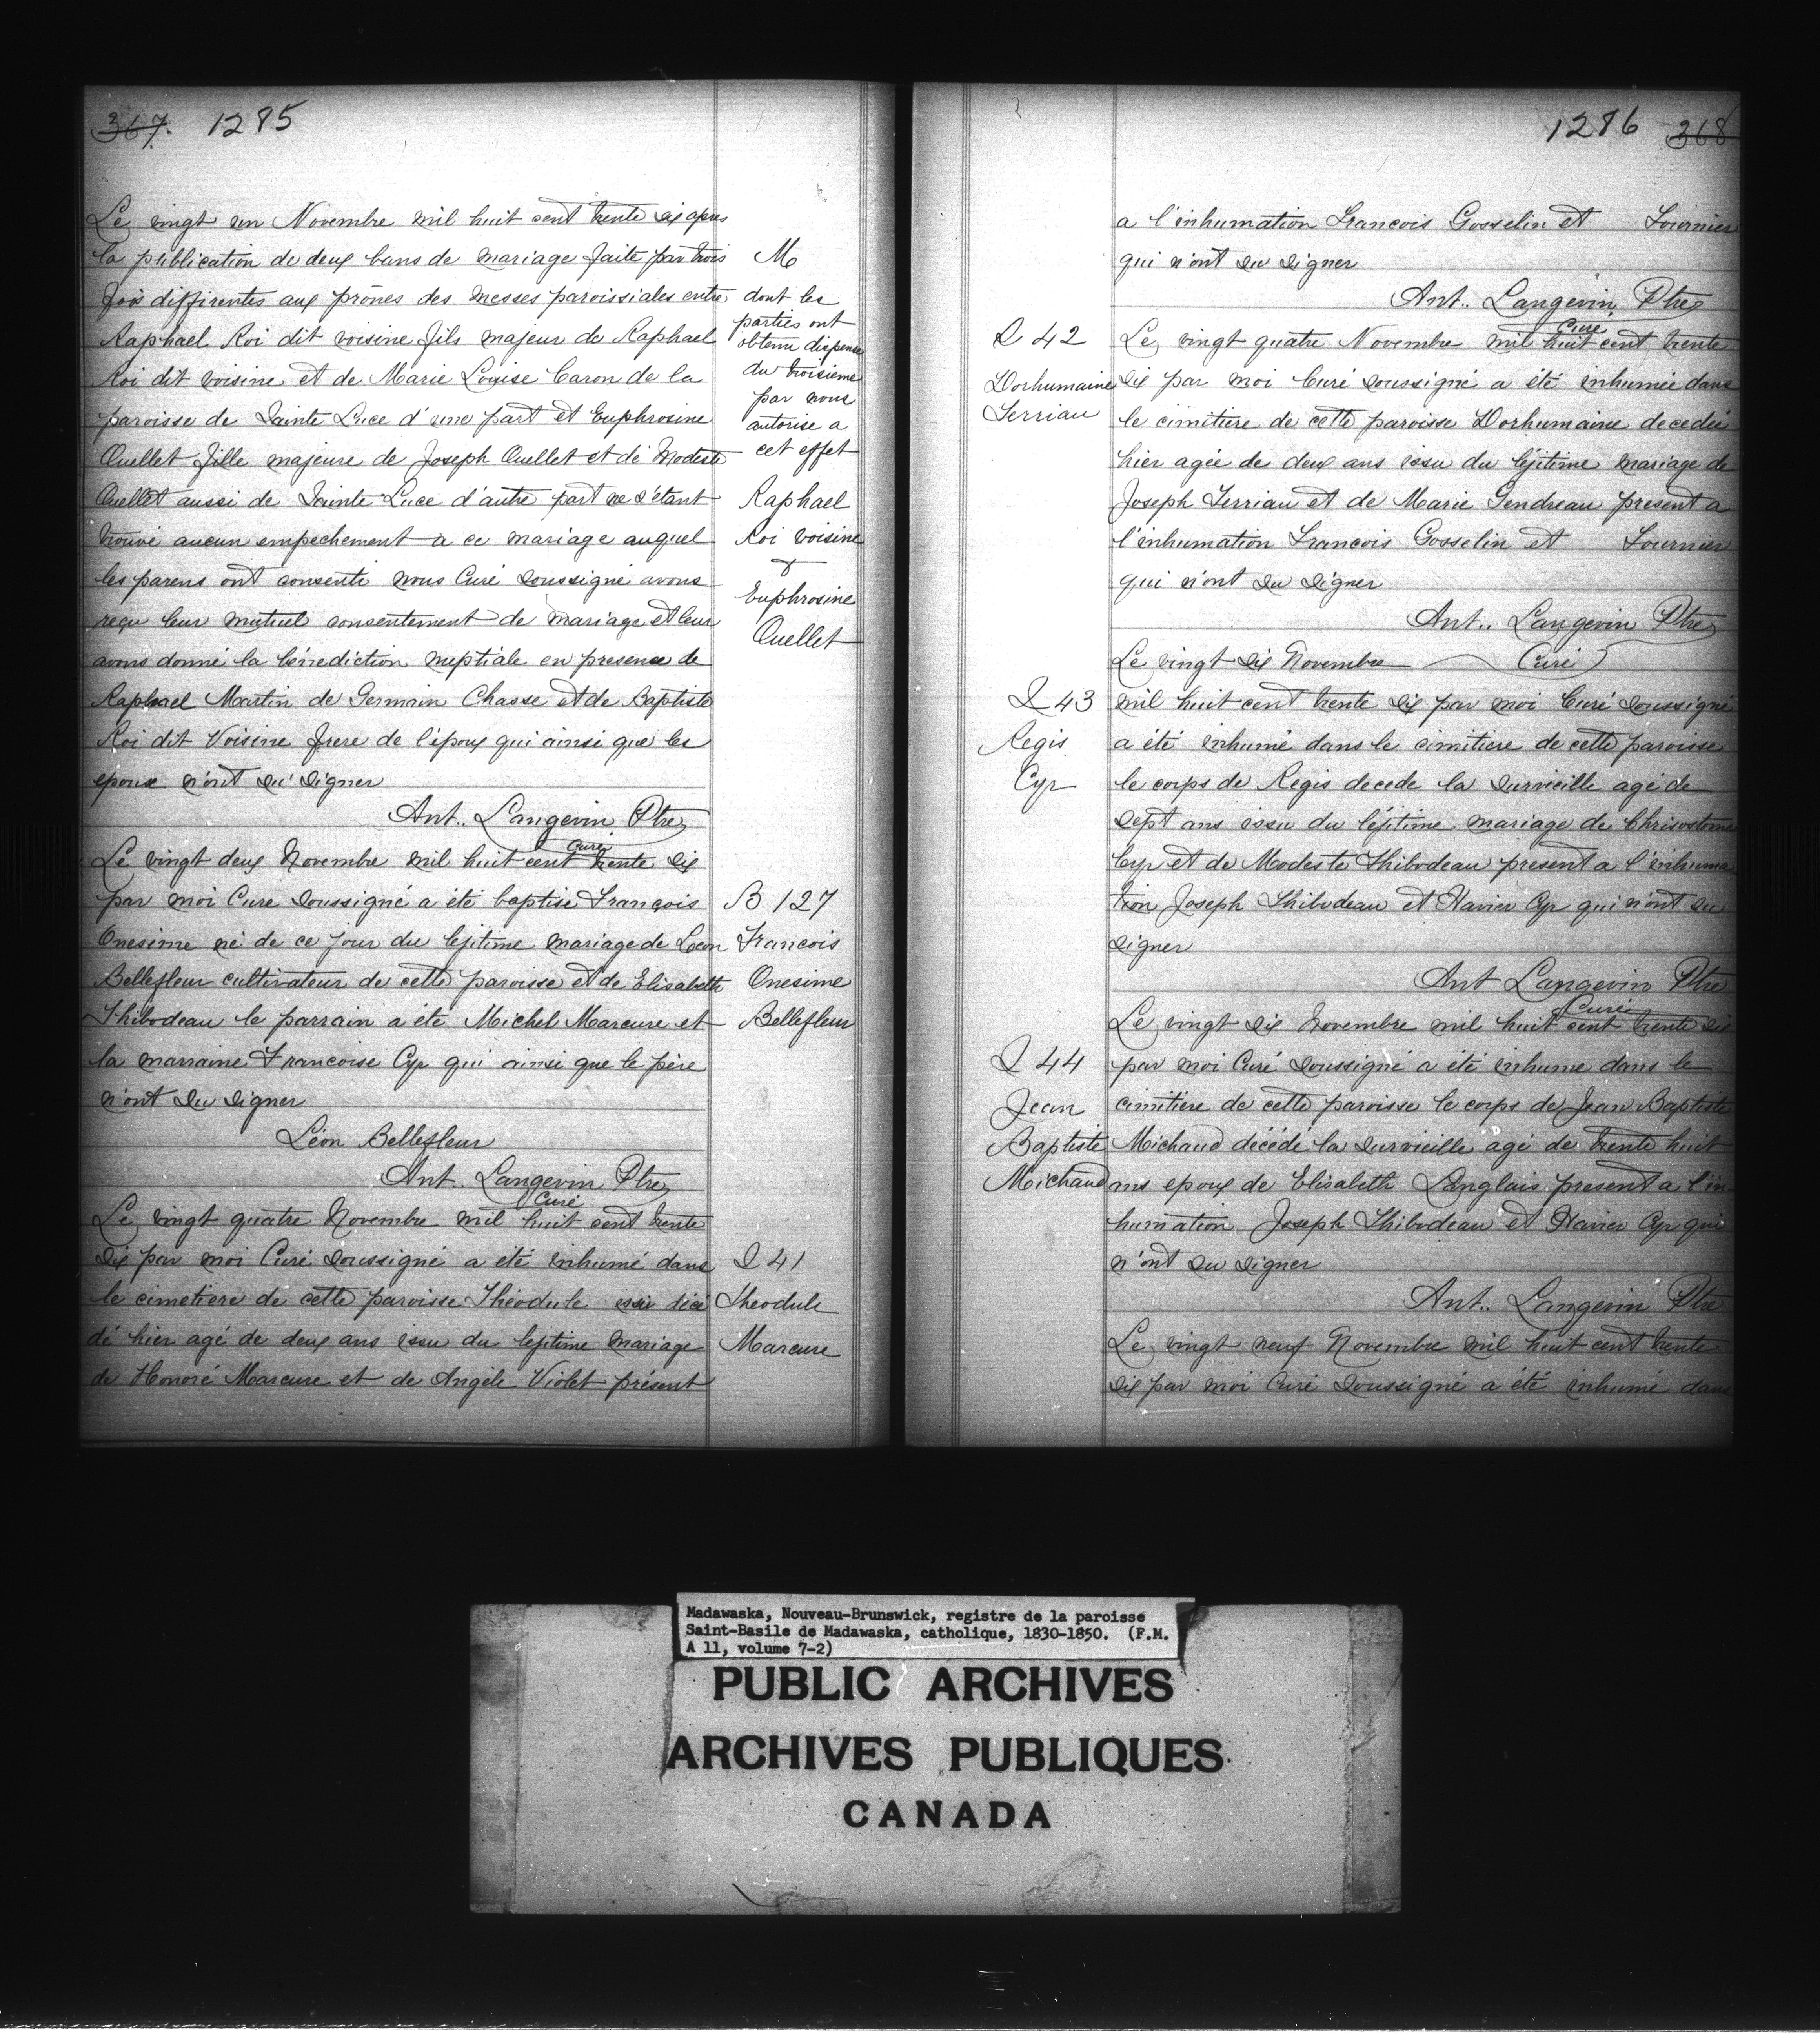 367. 1285
Le vingt un Novembre mil huit cent trente six apres
la publication de deux bans de mariage faite par trois
fois differentes aux prônes des messes paroissiales entre
Raphael Roi dit voisine fils majeur de Raphael
Roi dit voisine et de Marie Louise Caron de la
paroisse de Sainte Luce d'une part et Euphrosine
Ouellet fille majeure de Joseph Ouellet et de Modeste
Ouellet aussi de Sainte Luce d'autre part ne s'étant
trouvé aucun empechement a ce mariage auquel
les parens ont consenti nous Curé soussigné avons
reçu leur mutuel consentement de mariage et leur
avons donné la bénediction nuptiale en presence de
Raphael Martin de Germain Chasse et de Baptiste
Roi dit Voisine frere de l'époux qui ainsi que les
epoux n'ont su signer
Ant.. Langevin Ptre
Curé
M
dont les
parties ont
obtenu dispense
du troisieme
par nous
autorise a
cet effet
Raphael
Roi voisine
&
Euphrosine
Ouellet
Le vingt deux Novembre mil huit cent trente six
par moi Cure soussigné a été baptisé François
Onesime né de ce jour du lejitime mariage de Leon
Bellefleur cultivateur de cette paroisse et de Elisabeth
Thibodeau le parrain a été Michel Marcure et
la marraine Francoise Cyr qui ainsi que le père
n'ont su signer
Léon Bellefleur
Ant. Langevin Ptre
Curé
B 127
Francois
Onesime
Bellefleur
Le vingt quatre Novembre mil huit cent trente
six par moi Curé soussigné a été inhumé dans
le cimetiere de cette paroisse Théodule décé
dé hier agé de deux ans issu du lejitime mariage
de Honoré Marcure et de Angèle Violet présent
I 41
Theodule
Marcure
1286 368
a l'inhumation Francois Gosselin et Fournier
qui n'ont su signer
Ant.. Langevin Ptre
Cure
I 42
Dorhumaine
Terriau
Le vingt quatre Novembre mil huit cent trente
six par moi Curé soussigné a été inhumée dans
le cimitiere de cette paroisse Dorhumaine decedée
hier agée de deux ans issu du léjitime mariage de
Joseph Terriau et de Marie Gendreau present a
l'inhumation Francois Gosselin et Fournier
qui n'ont su signer
Ant.. Langevin Ptre
Curé
I 43
Regis
Cyr
Le vingt six Novembre
mil huit cent trente six par moi Curé soussigné
a été inhumé dans le cimitiere de cette paroisse
le corps de Regis decede la surveille agé de
sept ans issu du léjitime mariage de Chrisostome
Cyr et de Modeste Thibodeau present a l'inhuma
tion Joseph Thibodeau et Xavier Cyr qui n'ont su
signer
Ant Langevin Ptre
Curé
I 44
Jean
Baptiste
Michaud
Le vingt six Novembre mil huit cent trente six
par moi Curé soussigné a été inhume dans le
cimitiere de cette paroisse le corps de Jean Baptiste
Michaud décédé la surveille agé de trente huit
ans epoux de Elisabeth Langlais present a l'in
humation Joseph Thibodeau et Xavier Cyr qui
n'ont su signer
Ant.. Langevin Ptre
Le vingt neuf Novembre mil huit cent trente
six par moi Curé soussigné a été inhumé dans
Madawaska, Nouveau-Brunswick, registre de la paroisse
Saint-Basile de Madawaska, catholique, 1830-1850. (F.M.
A 11, volume 7-2)
PUBLIC ARCHIVES
ARCHIVES PUBLIQUES
CANADA